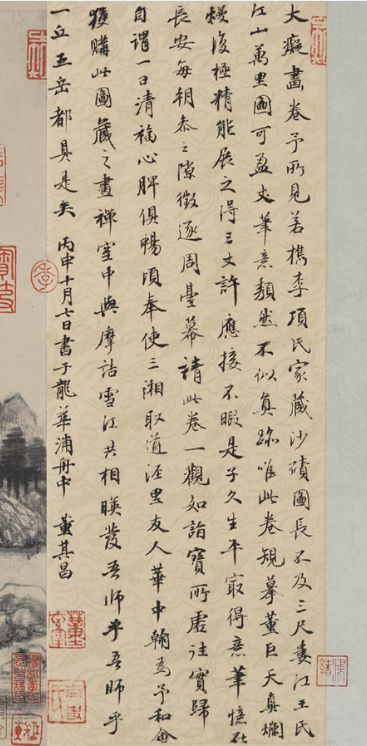 大癡畫卷予所見若檇李項氏家藏沙磧圖長不及三尺婁江王氏
江山萬里圖可盈丈筆意頹然不似真跡唯此卷規摹董巨天真爛
熳復極精能展之得三丈許應接不暇是子久生平冣得意筆憶在
長安每朝參之隙徵逐周臺幕請此卷一觀如詣寶所虛往實歸
自謂一日清福心脾俱暢頃奉使三湘取道涇里友人華中翰為予和會
獲購此圖藏之畫禪室中與摩詰雪江共相暎發吾師乎吾師乎
一丘五岳都具是矣 丙申十月七日書于龍華浦舟中 董其昌